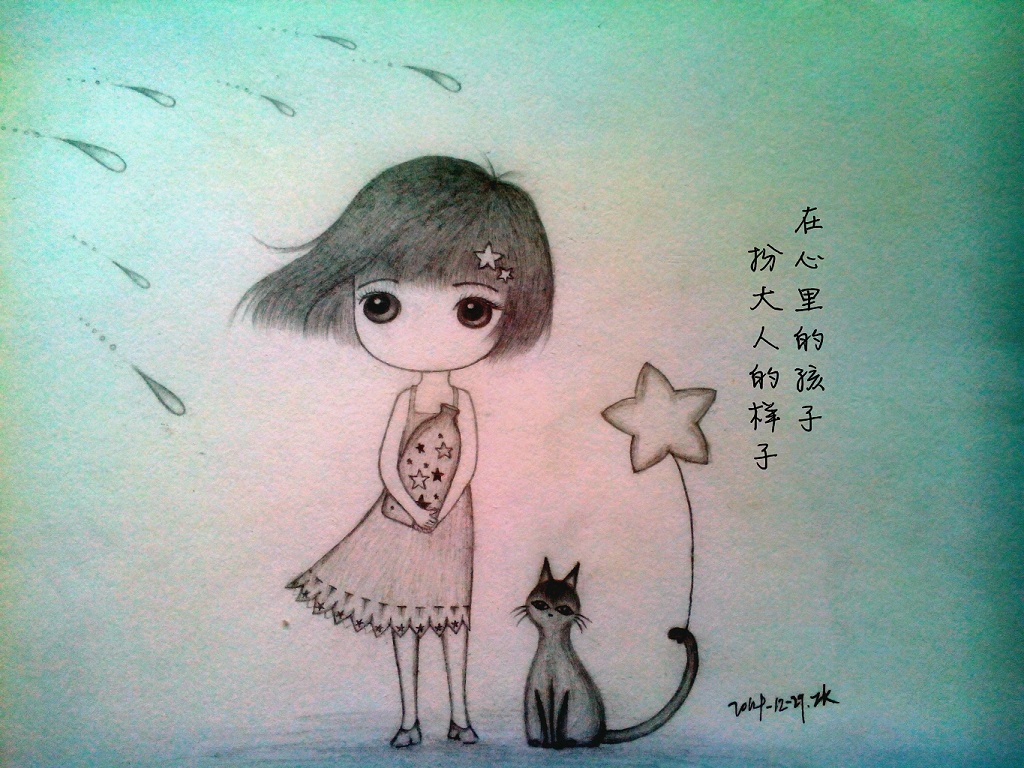 在心里的孩子
扮大人的样子
2014-12-29.ZK